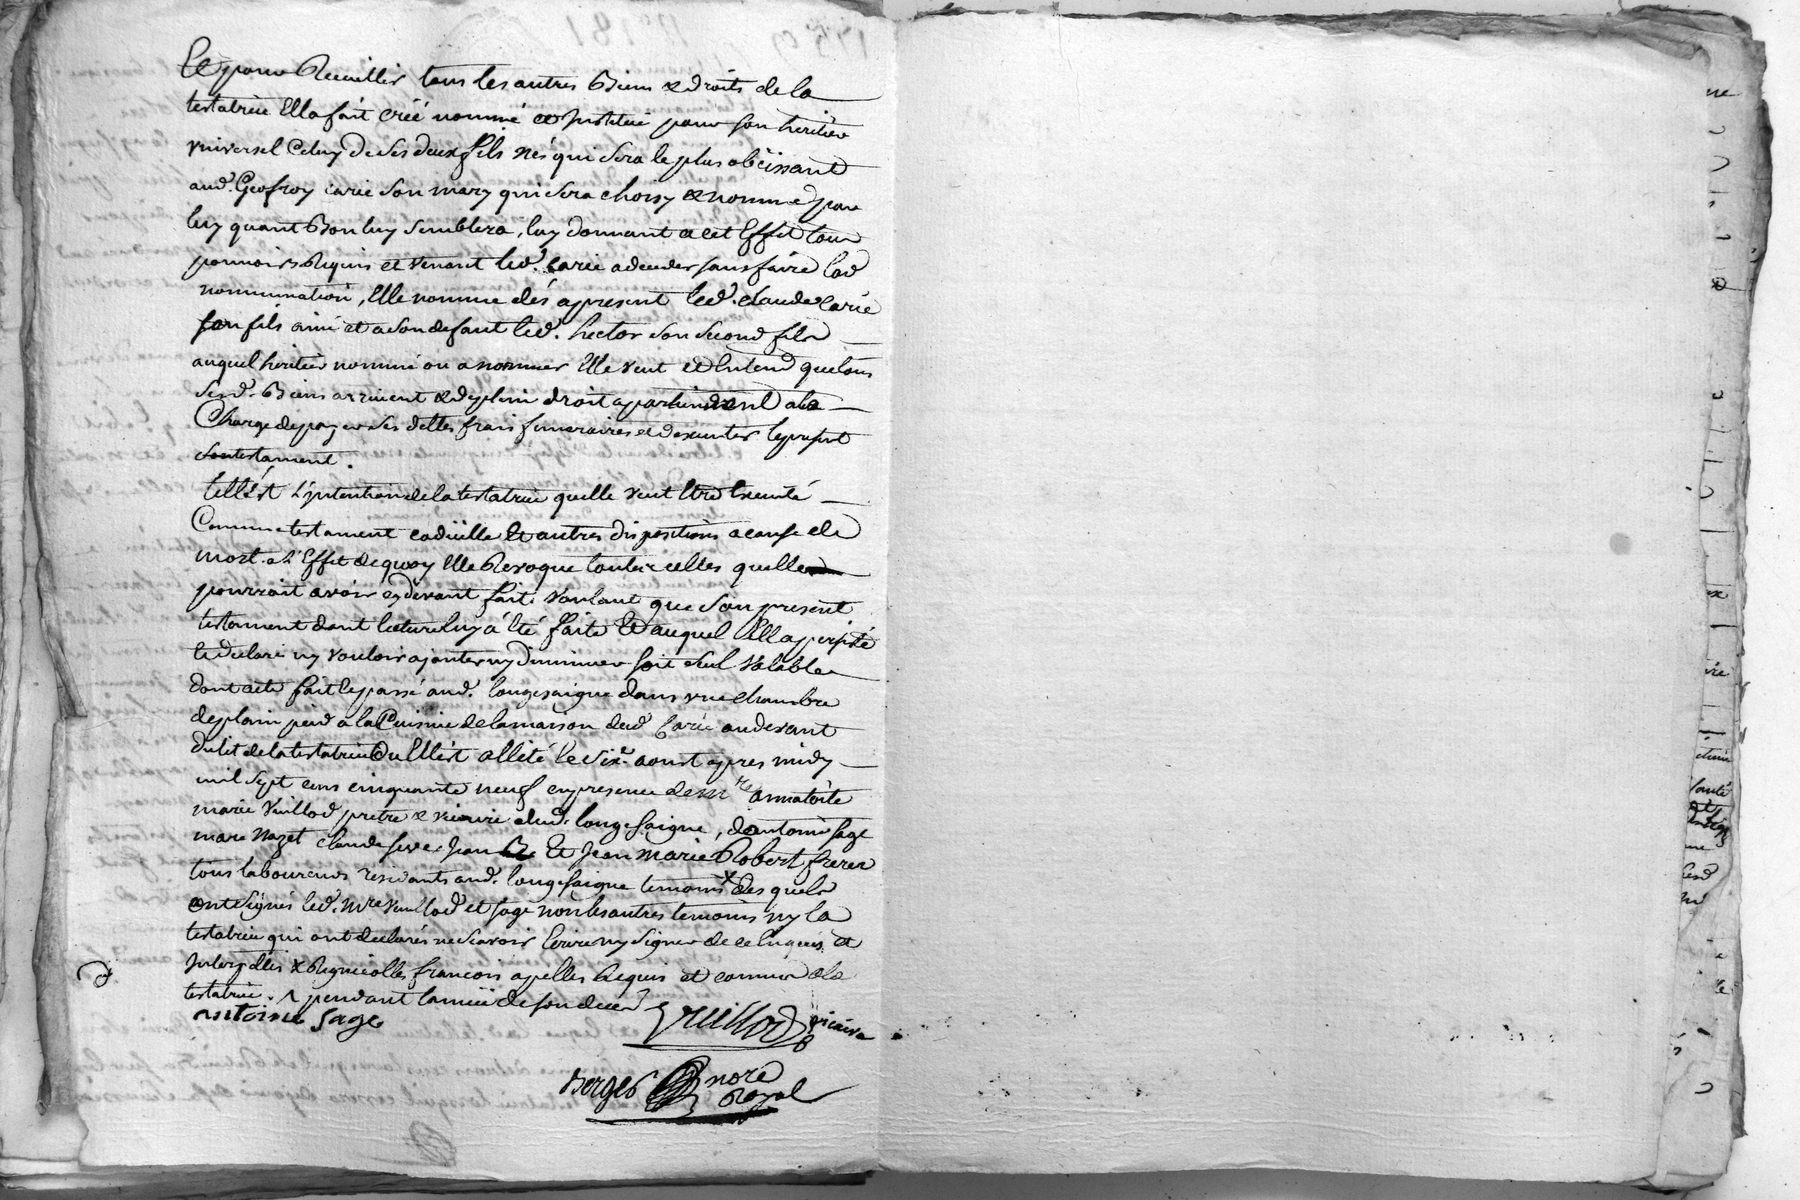 Et pour Recuillir tous les autres Biens & droits de la
testatrice Ella fait créé nommé et Institué pour son heritier
vniversel Celuy de ses deux fils nés qui sera le plus obëissant
aud. Geofroy carie son mary qui sera choisy & nommé par
luy quant Bon luy semblera, luy donnant a cet Effet tous
pouvoirs Requis et venant led. Carie a deceder sans faire lad
nommination, Elle nomme dés apresent led. claude Carie
son fils ainé et a son defaut led. hector son second fils
auquel héritier nommé ou a nommer Elle veut et Entend que tous
sesd. Biens arrivent & de plein droit apartiennent a la
Charge de payer ses dettes frais funeraires et dexecuter le present
son testament.
telle est L'jntention de la testatrice quelle veut Etre Executé
Comme testament codicille Et autres dispositions a cause de
mort. a L'Effet de quoy Elle Revoque toutes celles quelle
pourroit avoir cy devant fait. voulant que son present
testament dont lecture luy à Eté faite Et auquel Ella persisté
et declaré ny vouloir ajouter ny diminuer soit seul valable
dont acte fait et passé aud. longesaigne dans vne chambre
de plain pied a la Cuisine de la maison dud Carie au devant
du lit de la testatrice Ou Elle est allité le six.e aoust apres midy
mil sept cens cinquante neuf en presence de mre annatoile
marie Vuillod pretre & vicaire dud. longesaigne, d'antoine sage
marc Nazet claude seve Jean Et Jean marie Robert freres
tous laboureurs residants aud. longesaigne temoins x des quels
ont signés led. mre Vuillod et sage non les autres temoins ny la
testatrice qui ont declarés ne scavoir Ecrire ny signer de ce Enquis et
Interpellés x Regnicolles francois apelles Requis et connus de la
testatrice. ^ pendant lannée de son deces
antoine sage Vuillod vicaire
Berges nore
Royal